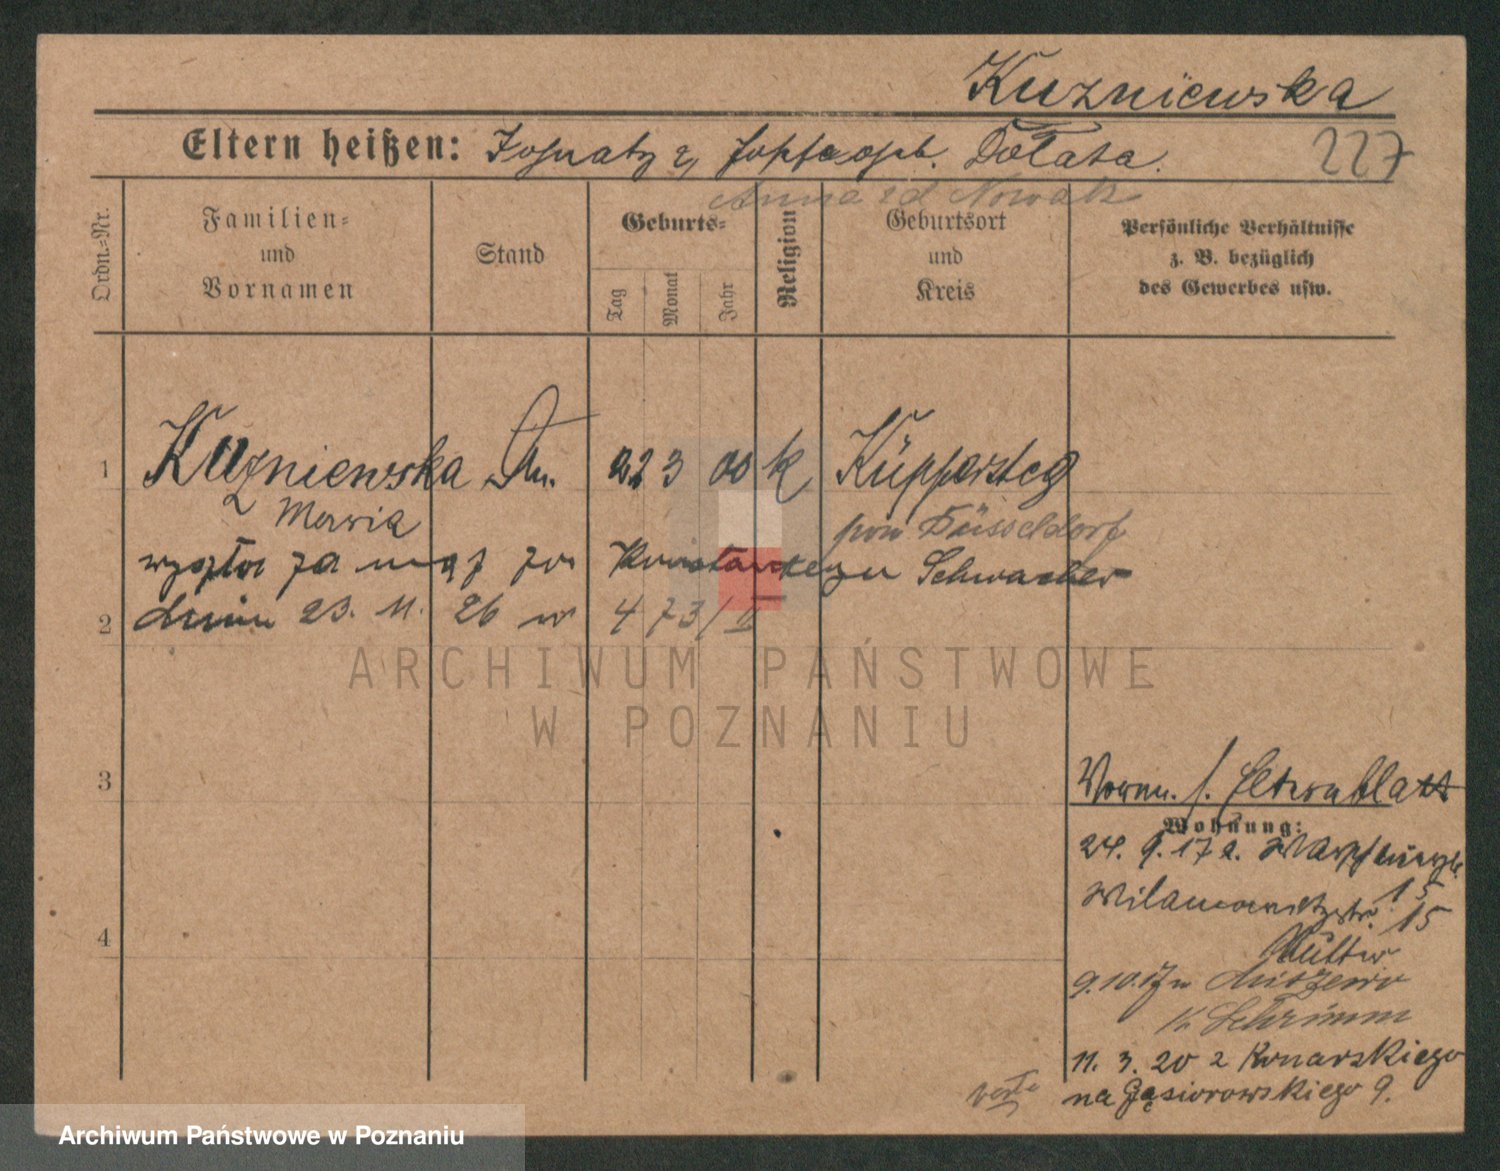 Kuzniewska
Eltern heißen: Ignatz u. geb. Dolata. 227
Anna zd Nowak
Ordn.=Nr.
Familien=
und
Vornamen
Stand
Geburts=
Tag
Monat
Jahr
Religion
Geburtsort
und
Kreis
Persönliche Verhältnisse
z. B. bezüglich
des Gewerbes usw.
1 Kuzniewska 22 3 00 k Küppersteg
Maria Düsseldorf
wyszła za mąż za Schwacher
2 dniu 23. 11. 26 w 473/II
3
4
Vorm. s. Elternblatt
Wohnung:
24. 9. 17 a. 15
Wilamowitzstr. 15
Mutter
9.10.17 n
K Schrimm
11. 3. 20 z Konarskiego
na Gąsiorowskiego 9.
verte
ARCHIWUM PAŃSTWOWE
W POZNANIU
Archiwum Państwowe w Poznaniu